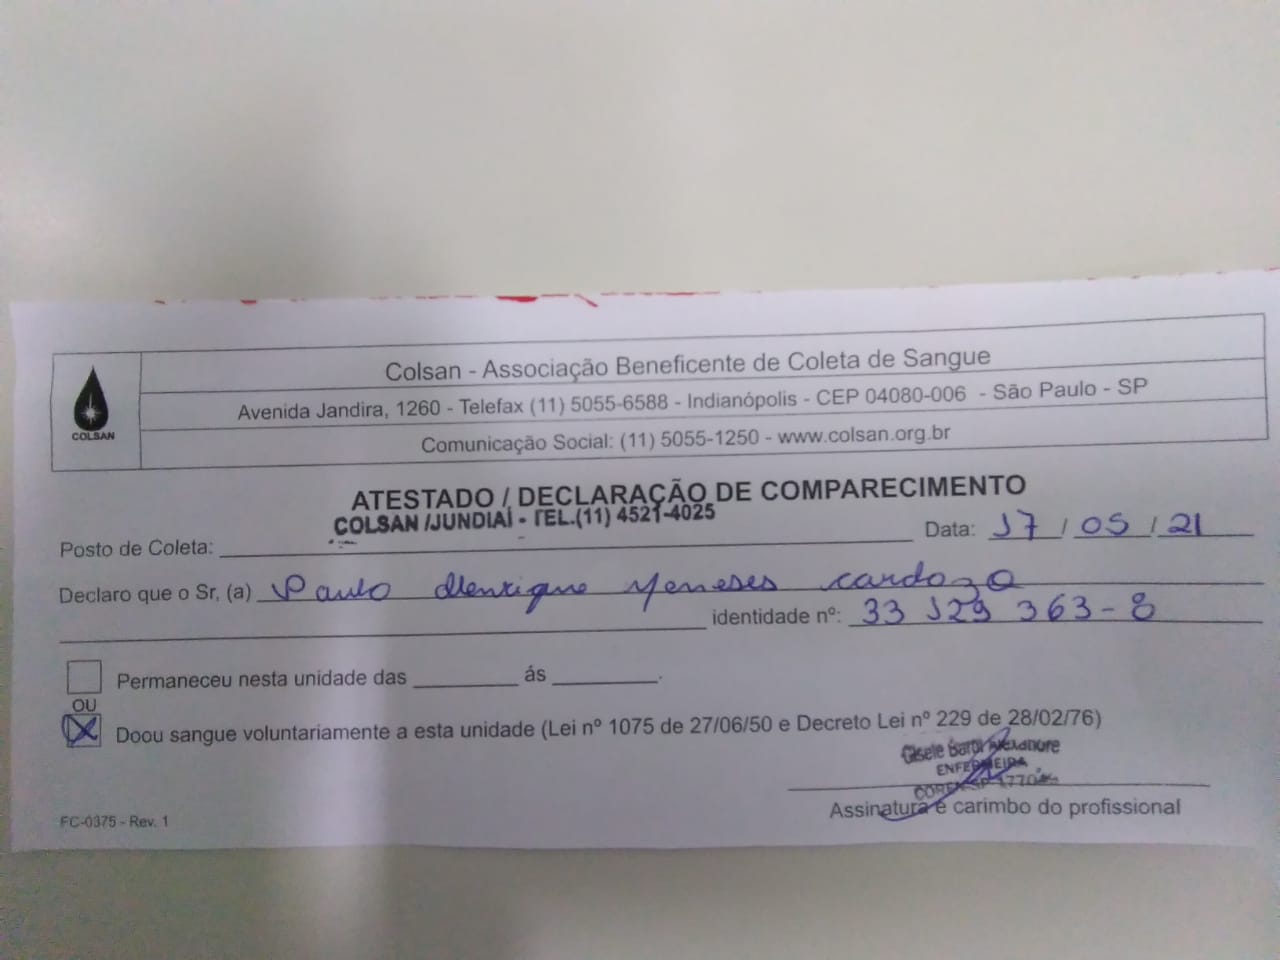 Colsan - Associação Beneficente de Coleta de Sangue
Avenida Jandira, 1260 - Telefax (11) 5055-6588 - Indianópolis - CEP 04080-006 - São Paulo - SP
COLSAN
Comunicação Social: (11) 5055-1250 - www.colsan.org.br
ATESTADO / DECLARAÇÃO DE COMPARECIMENTO
COLSAN /JUNDIAÍ - TEL.(11) 4521-4025
Posto de Coleta: Data: 17 / 05 / 21
Declaro que o Sr, (a) Paulo Henrique Meneses Cardozo
identidade nº: 33 129 363-8
Permaneceu nesta unidade das ás .
OU
Doou sangue voluntariamente a esta unidade (Lei nº 1075 de 27/06/50 e Decreto Lei nº 229 de 28/02/76)
Gisele Alexandre
ENFERMEIRA
COREN-SP
Assinatura e carimbo do profissional
FC-0375 - Rev. 1